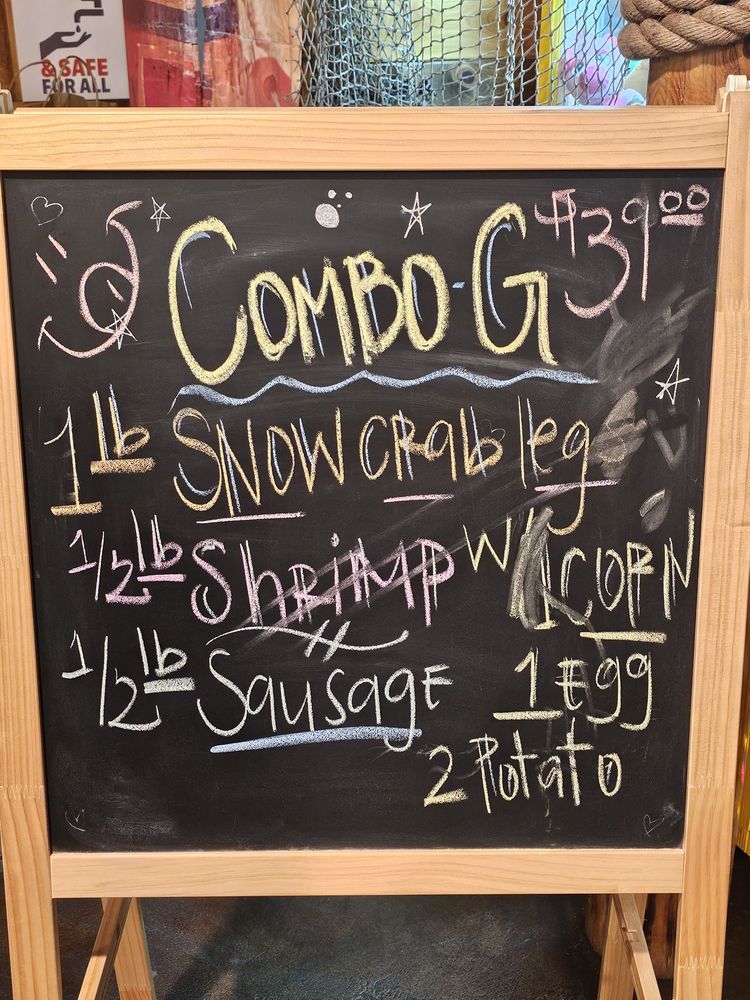 & SAFE
FOR ALL
COMBO-G $39.00
1 lb SNOW CRab leg
1/2 lb ShRiMP W/ 1 CORN
1/2 lb SausagE 1 Egg
2 Potato